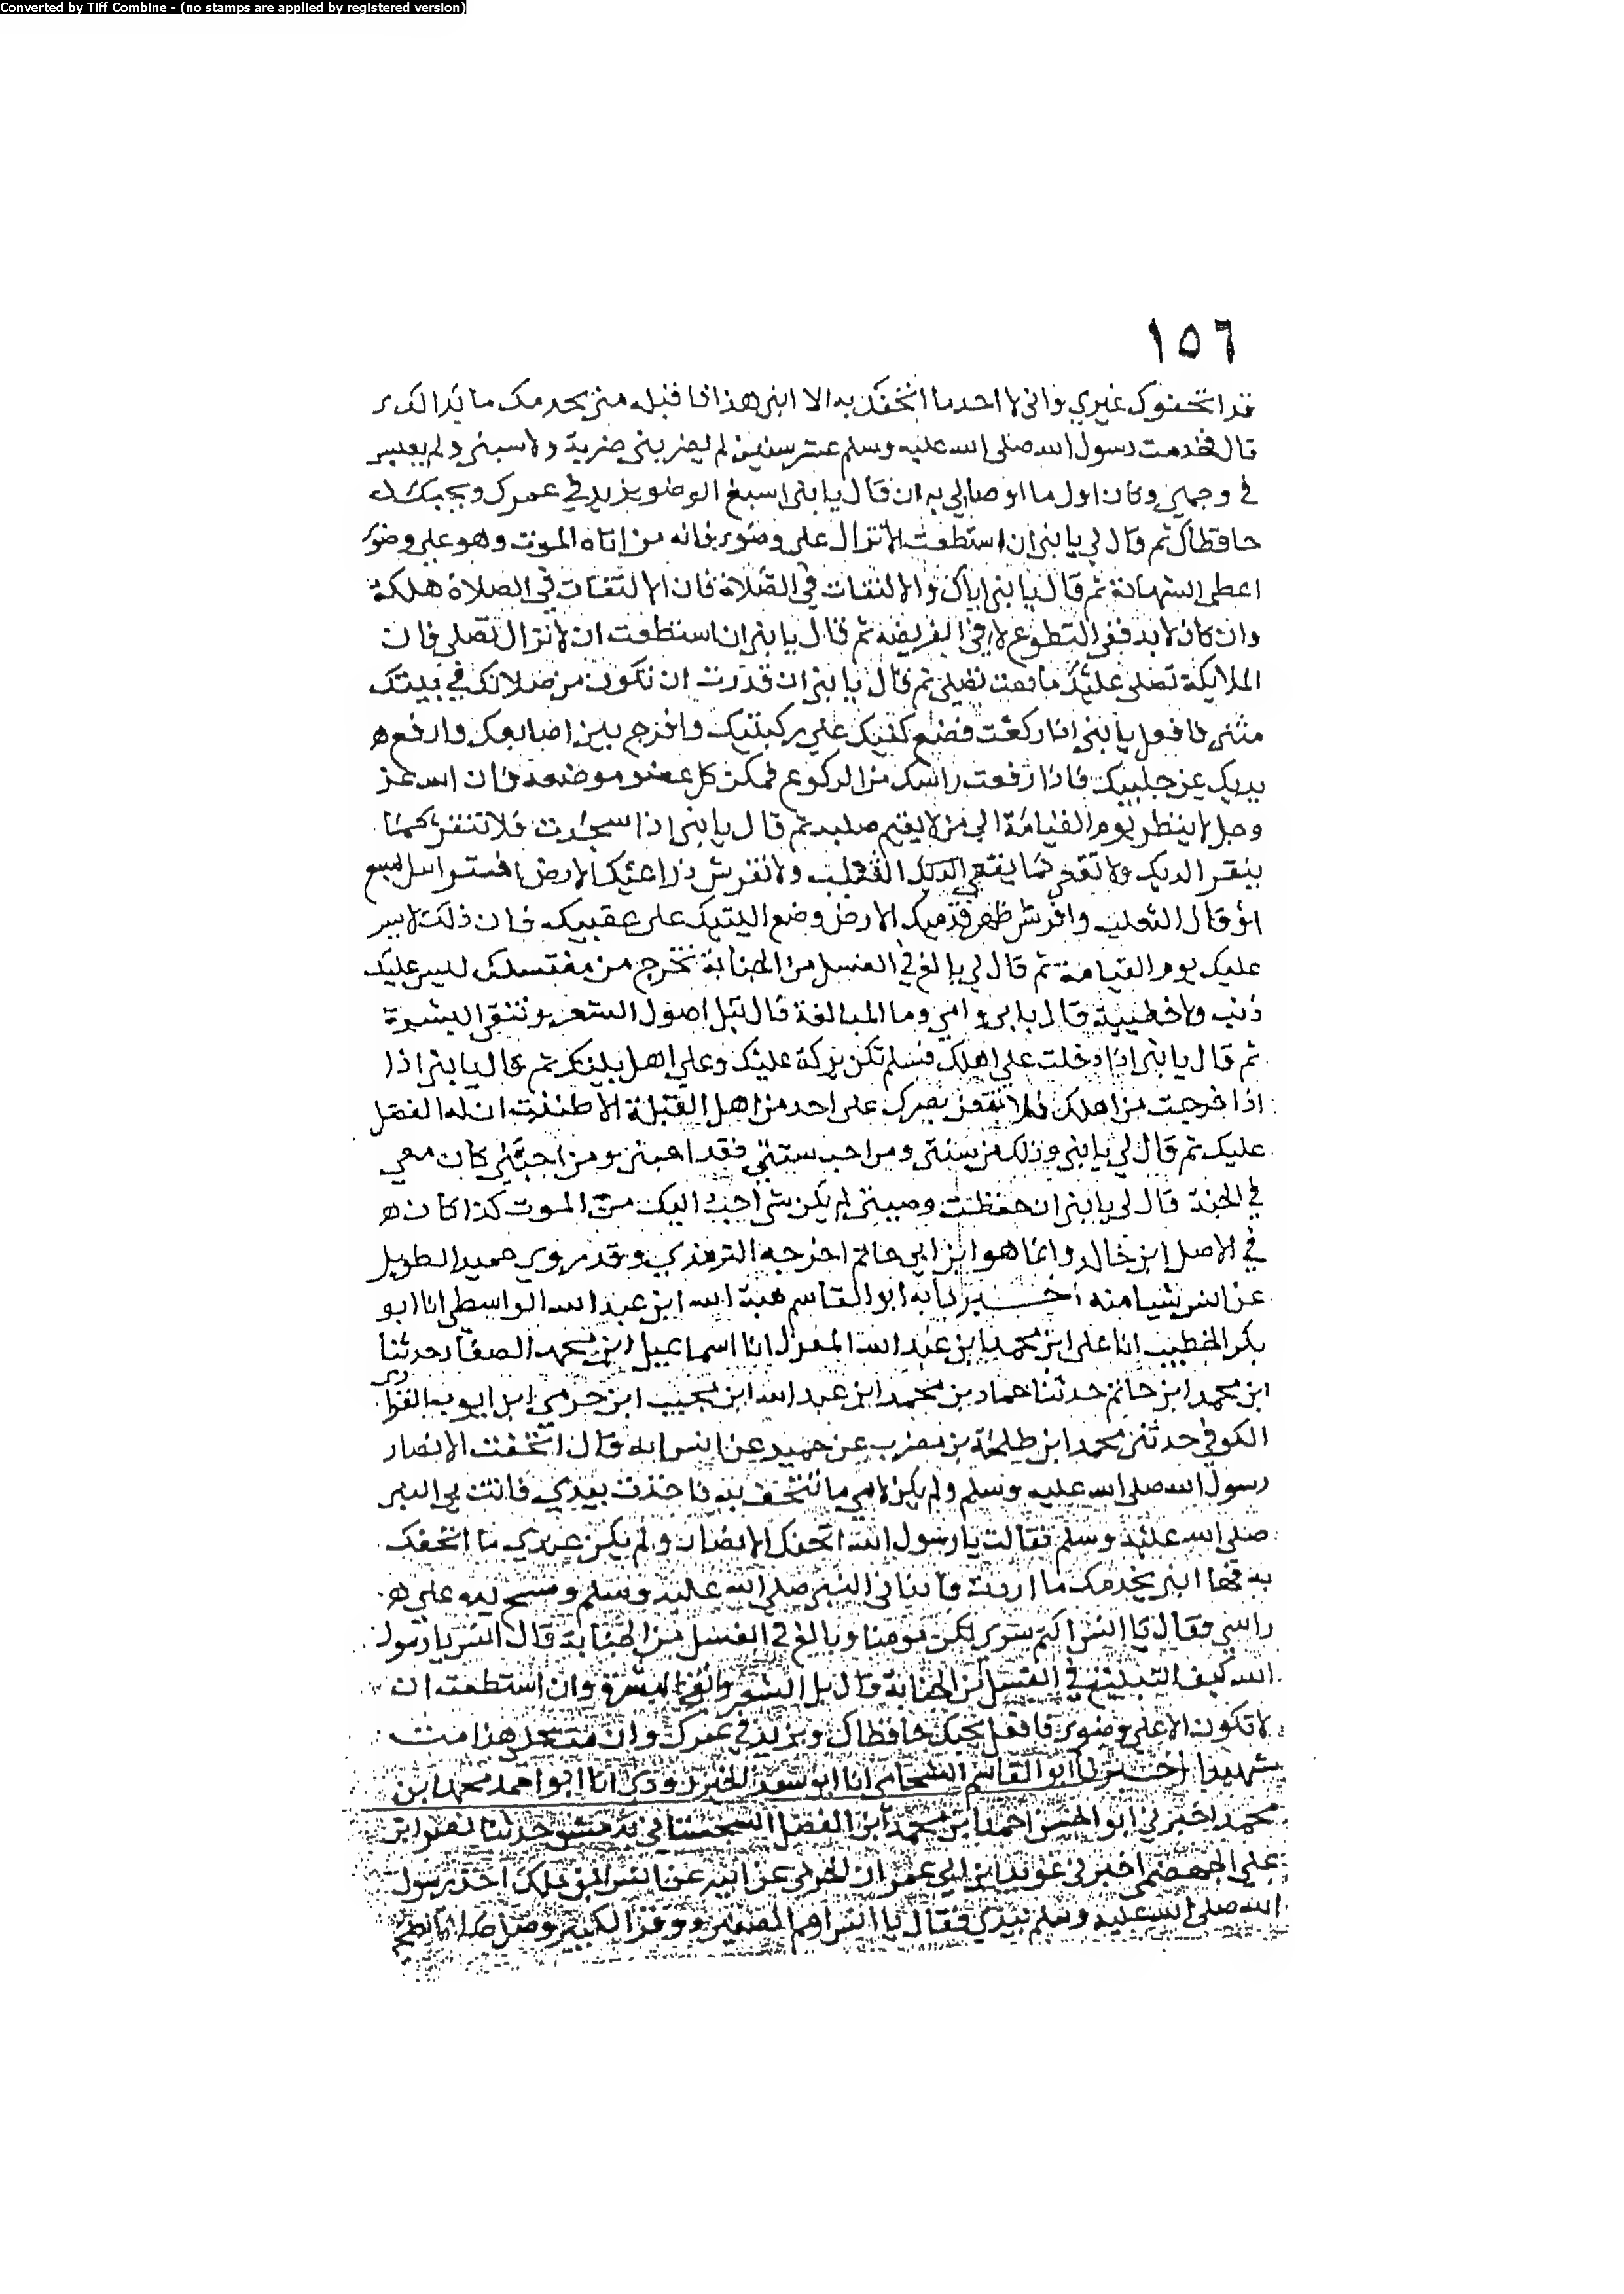 Converted by Tiff Combine - (no stamps are applied by registered version)
١٥٦
قد اتحفوك غيري واني لا احد ما اتحفك به الا ابني هذا فاقبله مني يخدمك ما بدا لك
قال فخدمت رسول الله صلى الله عليه وسلم عشر سنين لم يضربني ضربة ولا سبني ولم يعبس
في وجهي وكان اول ما اوصاني به ان قال يا بني اسبغ الوضو يزيد في عمرك ويحبك
حافظاك ثم قال لي يا بني ان استطعت لا تزال على وضوء فانه من اتاه الموت وهو على وضو
اعطي الشهادة ثم قال يا بني اياك والالتفات في الصلاة فان الالتفات في الصلاة هلكة
وان كان لا بد ففي التطوع لا في الفريضة ثم قال يا بني ان استطعت ان لا تزال تصلي فان
الملايكة تصلي عليك ما دمت تصلي ثم قال يا بني ان قدرت ان تكون من صلاتك في بيتك
فافعل يا بني اذا ركعت فضع كفيك على ركبتيك وافرج بين اصابعك وارفع ه
يديك عن جنبيك فاذا رفعت راسك من الركوع فمكن كل عضو موضعه فان الله عز
وجل لا ينظر يوم القيامة الى من لا يقيم صلبه ثم قال يا بني اذا سجدت فلا تنقر كما
ينقر الديك ولا تقعي كما يقعي ولا تفرش ذراعيك الارض افتراش السبع
او قال الثعلب وافرش ظهر قدميك الارض وضع اليتيك على عقبيك فان ذلك
عليك يوم القيامة ثم قال لي بالغ في الغسل من الجنابة تخرج من مغتسلك ليس عليك
ذنب ولا خطيية قال بابي وامي وما المبالغة قال تبل اصول الشعر وتنقي البشرة
ثم قال يا بني اذا دخلت على اهلك فسلم تكن بركة عليك وعلى اهل بيتك ثم قال يا بني اذا
اذا خرجت من اهلك فلا يقعن بصرك على احد من اهل القبلة الا ظننت ان له الفضل
عليك ثم قال لي يا بني وذلك من سنتي ومن احب سنتي فقد احبني ومن احبني كان معي
في الجنة قال لي يا بني ان حفظت وصيتي لم يكن شي احب اليك من الموت كذا كان ه
في الاصل ابن خالد وانما هو ابن ابي حاتم اخرجه الترمذي وقد روي حميد الطويل
عن انس شيا منه اخبرنا به ابو القاسم هبة الله ابن عبد الله الواسطي انا ابو
بكر الخطيب انا علي ابن محمد ابن عبد الله المعدل انا اسماعيل ابن محمد الصفار حدثنا
ابن محمد ابن حاتم حدثنا حماد بن محمد ابن عبد الله ابن مجيب ابن حرمي ابن ايوب الفزاري
الكوفي حدثني محمد ابن طلحة بن مصرف عن حميد عن انس انه قال اتحفت الانصار
رسول الله صلى الله عليه وسلم ولم يكن لامي ما تتحف به فاخذت بيدي فاتت بي النبي
صلى الله عليه وسلم فقالت يا رسول الله اتحفك الانصار ولم يكن عندي ما اتحفك
به فهذا ابني يخدمك ما اردت النبي صلى الله عليه وسلم ومسح يده على ه
راسي فقال يا انس اكتم سري تكن مومنا وبالغ في الغسل من الجنابة قال انس يا رسول
الله كيف في الغسل من الجنابة قال بل الشعر وانق البشرة وان استطعت ان
لا تكون الا على وضوء فافعل يحبك حافظاك ويزيد في عمرك وان مت على هذا مت
شهيدا اخبرنا ابو القاسم الشحامي انا ابو سعد الجنزرودي انا ابو احمد محمد ابن
محمد اخبرني ابو الحسن احمد ابن محمد ابن الفضل السجستاني بدمشق حدثنا نصر ابن
علي الجهضمي اخبرني عوبد ابن ابي عمران الجوني عن ابيه عن انس ابن ملك اخذ رسول
الله صلى الله عليه وسلم بيدي فقال يا انس ارحم الصغير ووقر الكبير وصل